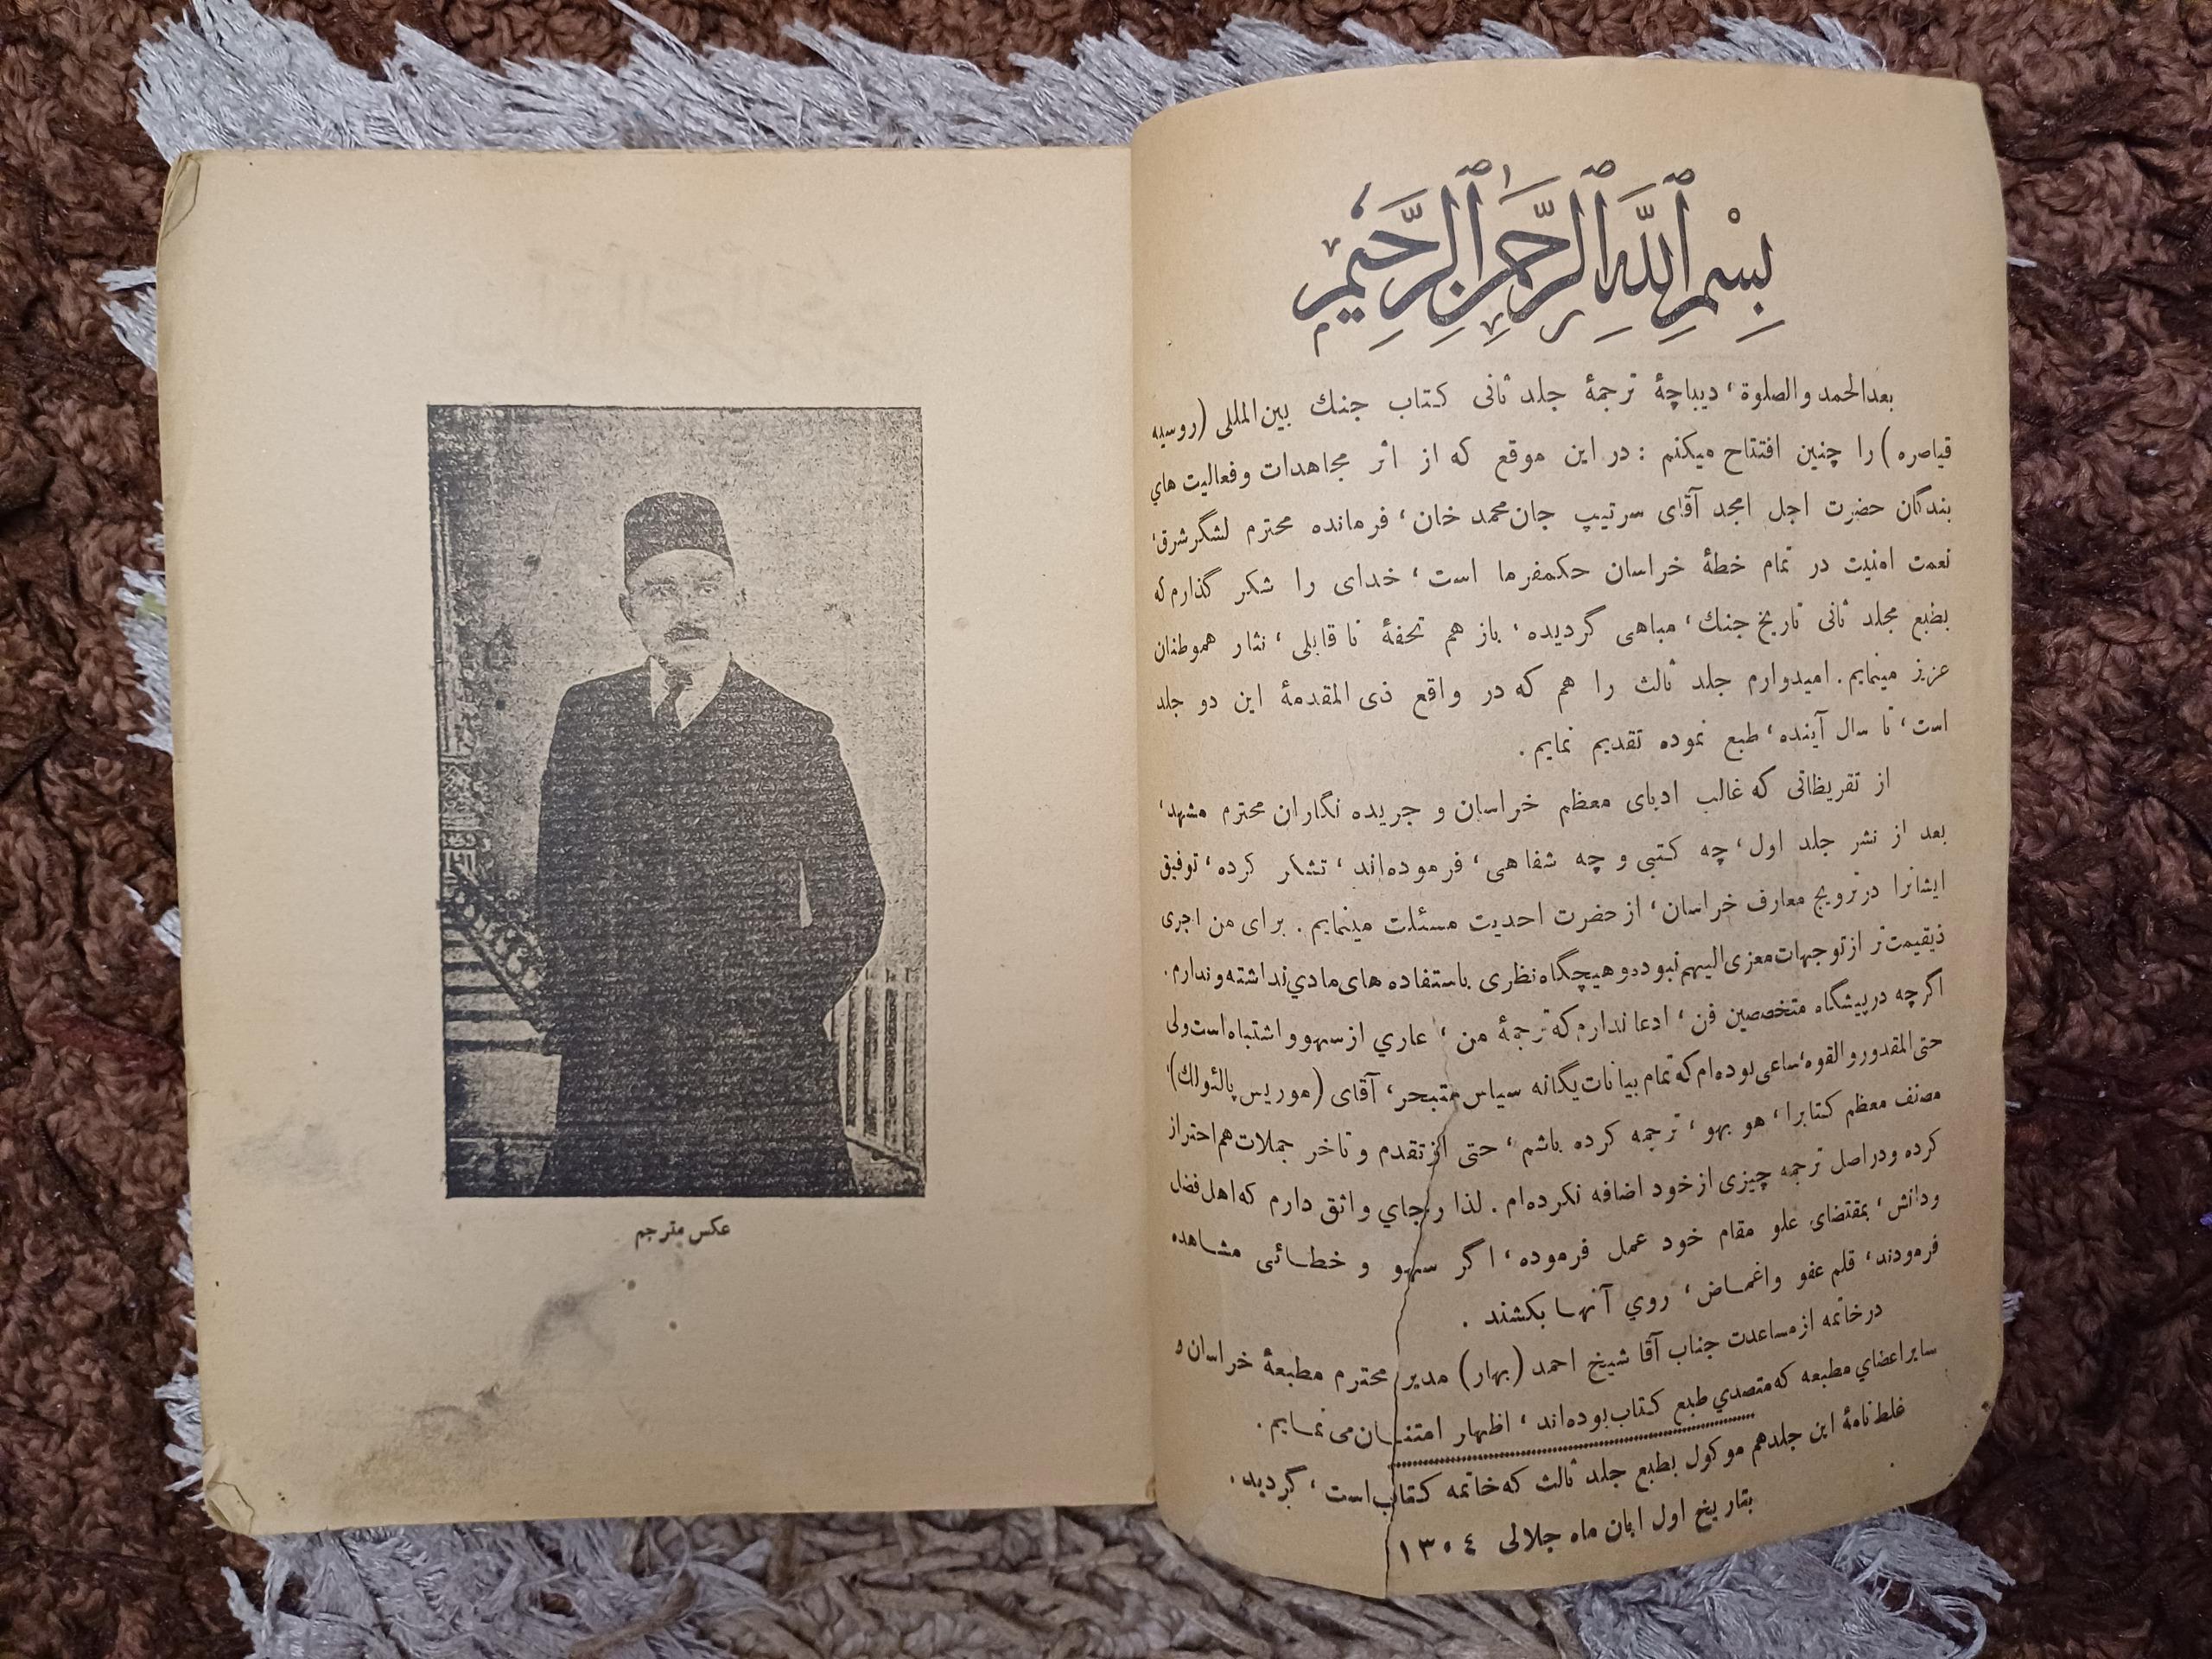 بِسْمِ ٱللَّهِ ٱلرَّحْمَٰنِ ٱلرَّحِيمِ
بعدالحمد والصلوة، دیباچهٔ ترجمهٔ جلد ثانی کتاب جنك بین‌المللی (روسیه
قیاصره) را چنین افتتاح میکنم : در این موقع که از اثر مجاهدات و فعالیت هاي
بندگان حضرت اجل امجد آقای سرتیپ جان‌محمد خان، فرمانده محترم لشگر شرق،
نعمت امنیت در تمام خطهٔ خراسان حکمفرما است، خدای را شکر گذارم که
بطبع مجلد ثانی تاریخ جنك، مباهی گردیده، باز هم تحفهٔ نا قابلی، نثار هموطنان
عزیز مینمایم. امیدوارم جلد ثالث را هم که در واقع ذی المقدمهٔ این دو جلد
است، تا سال آینده، طبع نموده تقدیم نمایم.
از تقریظاتی که غالب ادبای معظم خراسان و جریده نگاران محترم مشهد،
بعد از نشر جلد اول، چه کتبی و چه شفاهی، فرموده‌اند، تشکر کرده، توفیق
ایشانرا در ترویج معارف خراسان، از حضرت احدیت مسئلت مینمایم. برای من اجری
ذیقیمت‌تر از توجهات معزی الیهم نبوده و هیچگاه نظری باستفاده های مادي نداشته و ندارم.
اگرچه در پیشگاه متخصصین فن، ادعا ندارم که ترجمهٔ من، عاري از سهو و اشتباه است ولی
حتی‌المقدور و القوه، ساعی بوده‌ام که تمام بیانات یگانه سیاس متبحر، آقای (موریس پالئولك)،
مصنف معظم کتابرا، هو بهو، ترجمه کرده باشم، حتی از تقدم و تاخر جملات هم احتراز
کرده و در اصل ترجمه چیزی از خود اضافه نکرده‌ام. لذا رجاي واثق دارم که اهل فضل
و دانش، بمقتضای علو مقام خود عمل فرموده، اگر سهو و خطائی مشاهده
فرمودند، قلم عفو و اغماض، روي آنها بکشند.
در خاتمه از مساعدت جناب آقا شیخ احمد (بهار) مدیر محترم مطبعهٔ خراسان و
سایر اعضاي مطبعه که متصدي طبع کتاب بوده‌اند، اظهار امتنان می نمایم.
غلط نامهٔ این جلد هم موکول بطبع جلد ثالث که خاتمه کتاب است، گردید.
بتاریخ اول ابان ماه جلالی ١٣٠٤
عکس مترجم